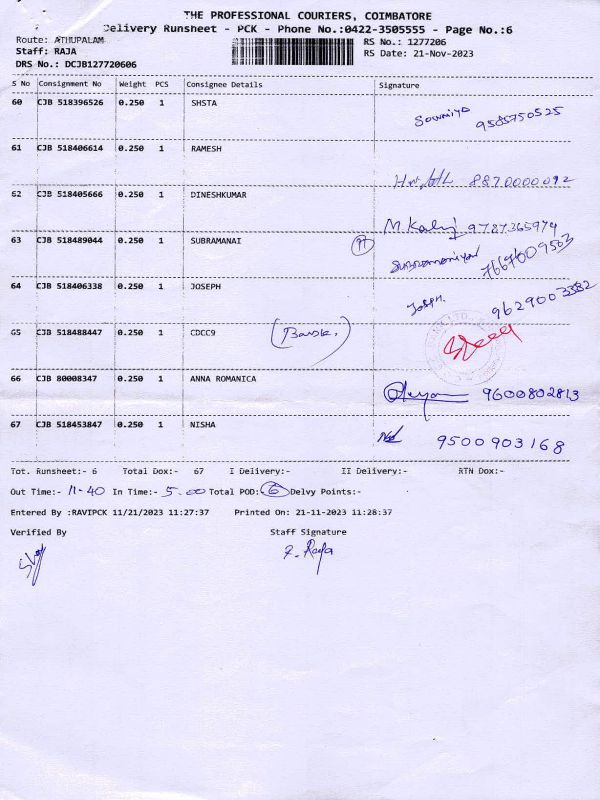 THE PROFESSIONAL COURIERS, COIMBATORE
Delivery Runsheet - PCK - Phone No.:0422-3505555 - Page No.:6
Route: ATHUPALAM RS No.: 1277206
Staff: RAJA RS Date: 21-Nov-2023
DRS No.: DCJB127720606
S No Consignment No Weight PCS Consignee Details Signature
60 CJB 518396526 0.250 1 SHSTA Sowmiya 9585750525
61 CJB 518406614 0.250 1 RAMESH 8870000092
62 CJB 518405666 0.250 1 DINESHKUMAR M. Kaly 9787365974
63 CJB 518489044 0.250 1 SUBRAMANAI Subramaniyan 7667009503
64 CJB 518406338 0.250 1 JOSEPH Joseph. 9629003382
65 CJB 518488447 0.250 1 CDCC9 (Bank.)
66 CJB 80008347 0.250 1 ANNA ROMANICA 9600802813
67 CJB 518453847 0.250 1 NISHA 9500903168
Tot. Runsheet:- 6 Total Dox:- 67 I Delivery:- II Delivery:- RTN Dox:-
Out Time:- 11-40 In Time:- 5.00 Total POD:- 6 Delvy Points:-
Entered By :RAVIPCK 11/21/2023 11:27:37 Printed On: 21-11-2023 11:28:37
Verified By Staff Signature